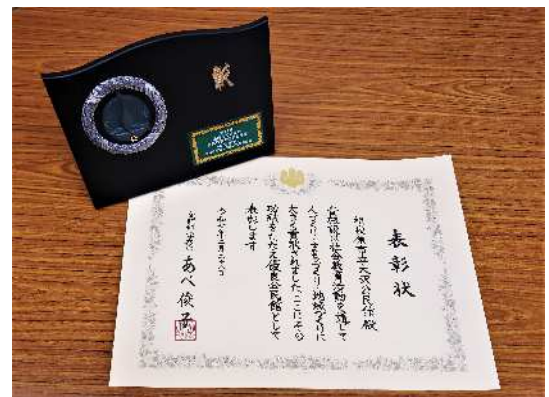 表彰状
相模原市立大沢公民館 殿
貴施設は社会教育活動を通して
人づくり・まちづくり・地域づくりに
大きく貢献されました ここにその
功績をたたえ優良公民館として
表彰します
文部科学大臣 あべ 俊子